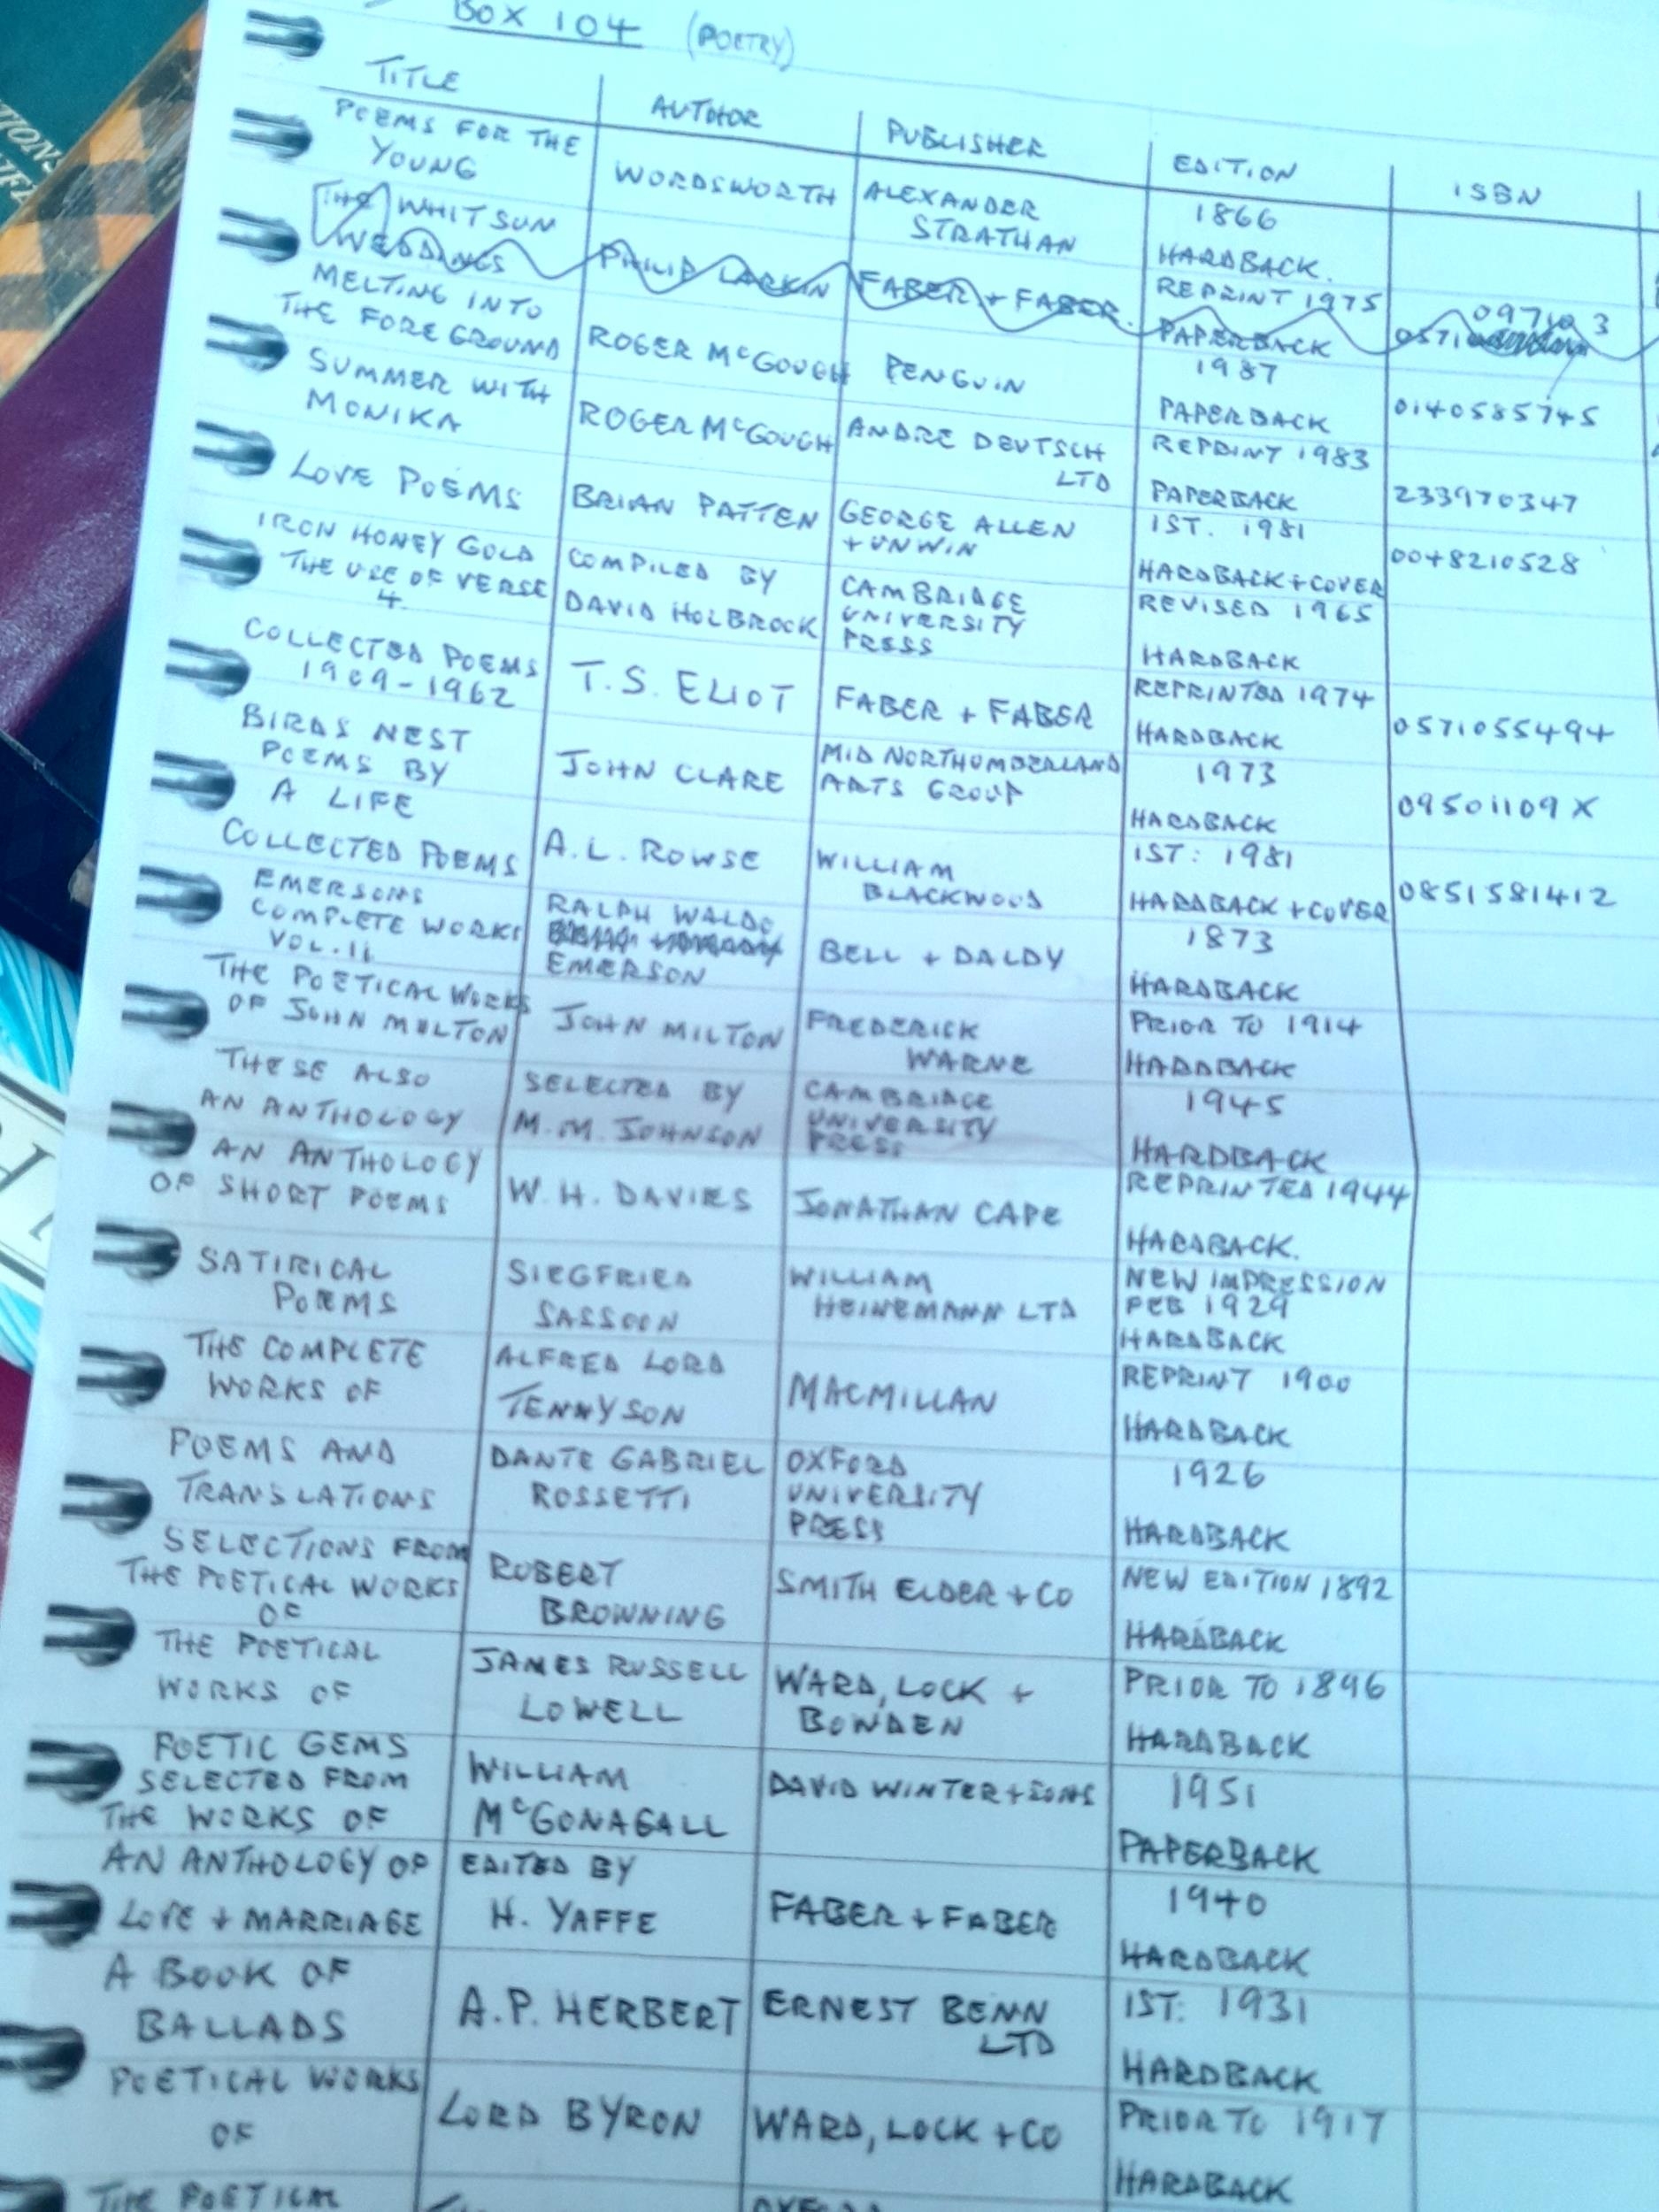 BOX 104 (POETRY)
TITLE AUTHOR PUBLISHER EDITION ISBN
POEMS FOR THE YOUNG WORDSWORTH ALEXANDER STRATHAN 1866 HARDBACK.
THE WHITSUN WEDDINGS PHILIP LARKIN FABER + FABER. REPRINT 1975 PAPERBACK
MELTING INTO THE FOREGROUND ROGER McGOUGH PENGUIN 1987 PAPERBACK 0140585745
SUMMER WITH MONIKA ROGER McGOUGH ANDRE DEUTSCH LTD REPRINT 1983 PAPERBACK 233970347
LOVE POEMS BRIAN PATTEN GEORGE ALLEN + UNWIN 1ST. 1981 HARDBACK + COVER 0048210528
IRON HONEY GOLD THE USE OF VERSE 4. COMPILED BY DAVID HOLBROCK CAMBRIDGE UNIVERSITY PRESS REVISED 1965 HARDBACK
COLLECTED POEMS 1909-1962 T.S. ELIOT FABER + FABER REPRINTED 1974 HARDBACK 0571055494
BIRDS NEST POEMS BY JOHN CLARE MID NORTHUMBERLAND ARTS GROUP 1973 HARDBACK 09501109X
A LIFE COLLECTED POEMS A.L. ROWSE WILLIAM BLACKWOOD 1ST: 1981 HARDBACK + COVER 0851581412
EMERSONS COMPLETE WORKS VOL. II RALPH WALDO EMERSON BELL + DALDY 1873 HARDBACK
THE POETICAL WORKS OF JOHN MILTON JOHN MILTON FREDERICK WARNE PRIOR TO 1914 HARDBACK
THESE ALSO AN ANTHOLOGY SELECTED BY M.M. JOHNSON CAMBRIDGE UNIVERSITY PRESS 1945 HARDBACK
AN ANTHOLOGY OF SHORT POEMS W.H. DAVIES JONATHAN CAPE REPRINTED 1944 HARDBACK.
SATIRICAL POEMS SIEGFRIED SASSOON WILLIAM HEINEMANN LTD NEW IMPRESSION FEB 1929 HARDBACK
THE COMPLETE WORKS OF ALFRED LORD TENNYSON MACMILLAN REPRINT 1900 HARDBACK
POEMS AND TRANSLATIONS DANTE GABRIEL ROSSETTI OXFORD UNIVERSITY PRESS 1926 HARDBACK
SELECTIONS FROM THE POETICAL WORKS OF ROBERT BROWNING SMITH ELDER + CO NEW EDITION 1892 HARDBACK
THE POETICAL WORKS OF JAMES RUSSELL LOWELL WARD, LOCK + BOWDEN PRIOR TO 1896 HARDBACK
POETIC GEMS SELECTED FROM THE WORKS OF WILLIAM McGONAGALL DAVID WINTER + SONS 1951 PAPERBACK
AN ANTHOLOGY OF LOVE + MARRIAGE EDITED BY H. YAFFE FABER + FABER 1940 HARDBACK
A BOOK OF BALLADS A.P. HERBERT ERNEST BENN LTD 1ST: 1931 HARDBACK
POETICAL WORKS OF LORD BYRON WARD, LOCK + CO PRIOR TO 1917 HARDBACK
THE POETICAL